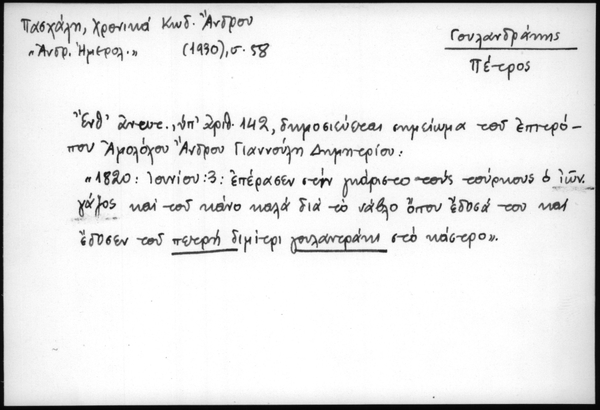 Πασχάλη, Χρονικά Κωδ. Ἄνδρου
"Ἀνδρ. Ἡμερολ." (1930), σ. 58
Γουλανδράκης
Πέτρος
Ἔνθ' ἀνωτ., ὑπ' ἀριθ. 142, δημοσιεύεται σημείωμα τοῦ ἐπιτρό-
που Ἀμολόχου Ἄνδρου Γιαννούλη Δημητρίου:
"1820: Ἰουνίου: 3: ἐπέρασεν στὴν γκάριστο τοὺς τούρκους ὁ ἰών.
γάγος καὶ τοῦ κάνο καλὰ διὰ τὸ νάβλο ὅπου ἔδοσά του καὶ
ἔδοσεν τοῦ πετρὴ διμίτρι γουλαντράκι στὸ κάστρο".